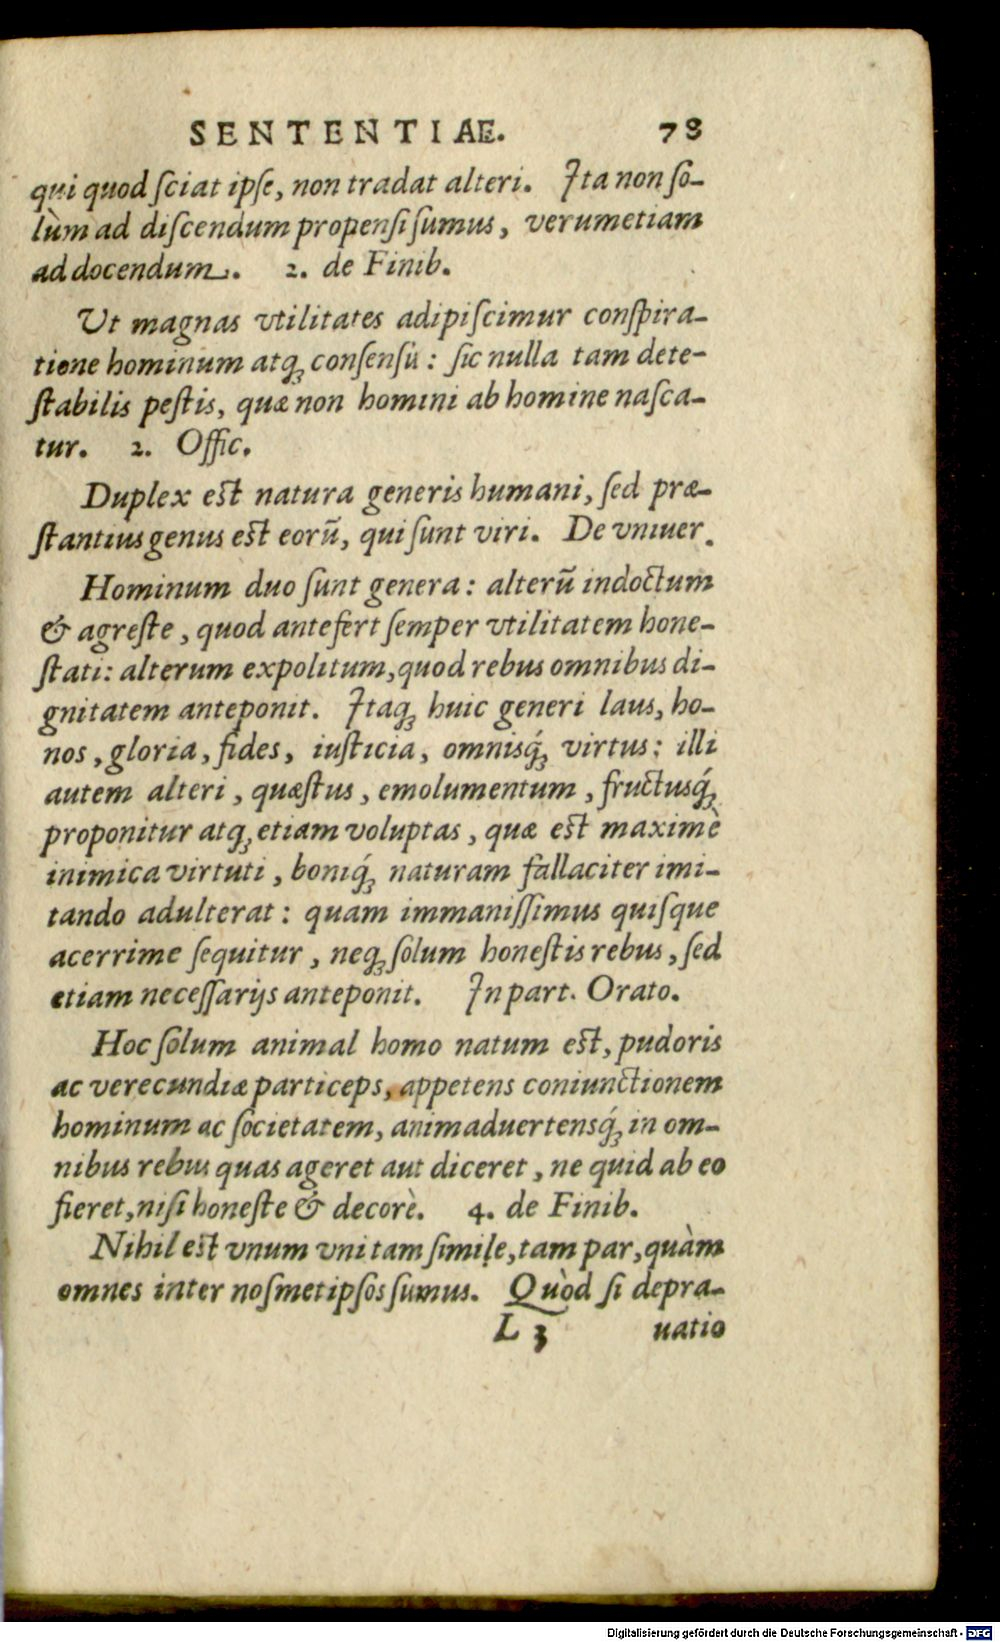 SENTENTIAE. 78
qui quod ſciat ipſe, non tradat alteri. Ita non ſo-
lùm ad diſcendum propenſi ſumus, verumetiam
ad docendum. 2. de Finib.
Ut magnas vtilitates adipiſcimur conſpira-
tione hominum atq; conſenſu: ſic nulla tam dete-
ſtabilis peſtis, quæ non homini ab homine naſca-
tur. 2. Offic.
Duplex est natura generis humani, ſed præ-
ſtantius genus est eorũ, qui ſunt viri. De vniuer.
Hominum duo ſunt genera: alterũ indoctum
& agreſte, quod antefert ſemper vtilitatem hone-
ſtati: alterum expolitum, quod rebus omnibus di-
gnitatem anteponit. Itaq; huic generi laus, ho-
nos, gloria, fides, iuſticia, omnisq́; virtus: illi
autem alteri, quæſtus, emolumentum, fructusq́;
proponitur atq; etiam voluptas, quæ est maximè
inimica virtuti, boniq́; naturam fallaciter imi-
tando adulterat: quam immaniſſimus quiſque
acerrime ſequitur, neq; ſolum honeſtis rebus, ſed
etiam neceſſarijs anteponit. In part. Orato.
Hoc ſolum animal homo natum est, pudoris
ac verecundiæ particeps, appetens coniunctionem
hominum ac ſocietatem, animaduertensq́; in om-
nibus rebus quas ageret aut diceret, ne quid ab eo
fieret, niſi honeſte & decorè. 4. de Finib.
Nihil est vnum vni tam ſimile, tam par, quàm
omnes inter noſmetipſos ſumus. Quòd ſi depra-
L 3 uatio
Digitalisierung gefördert durch die Deutsche Forschungsgemeinschaft - DFG